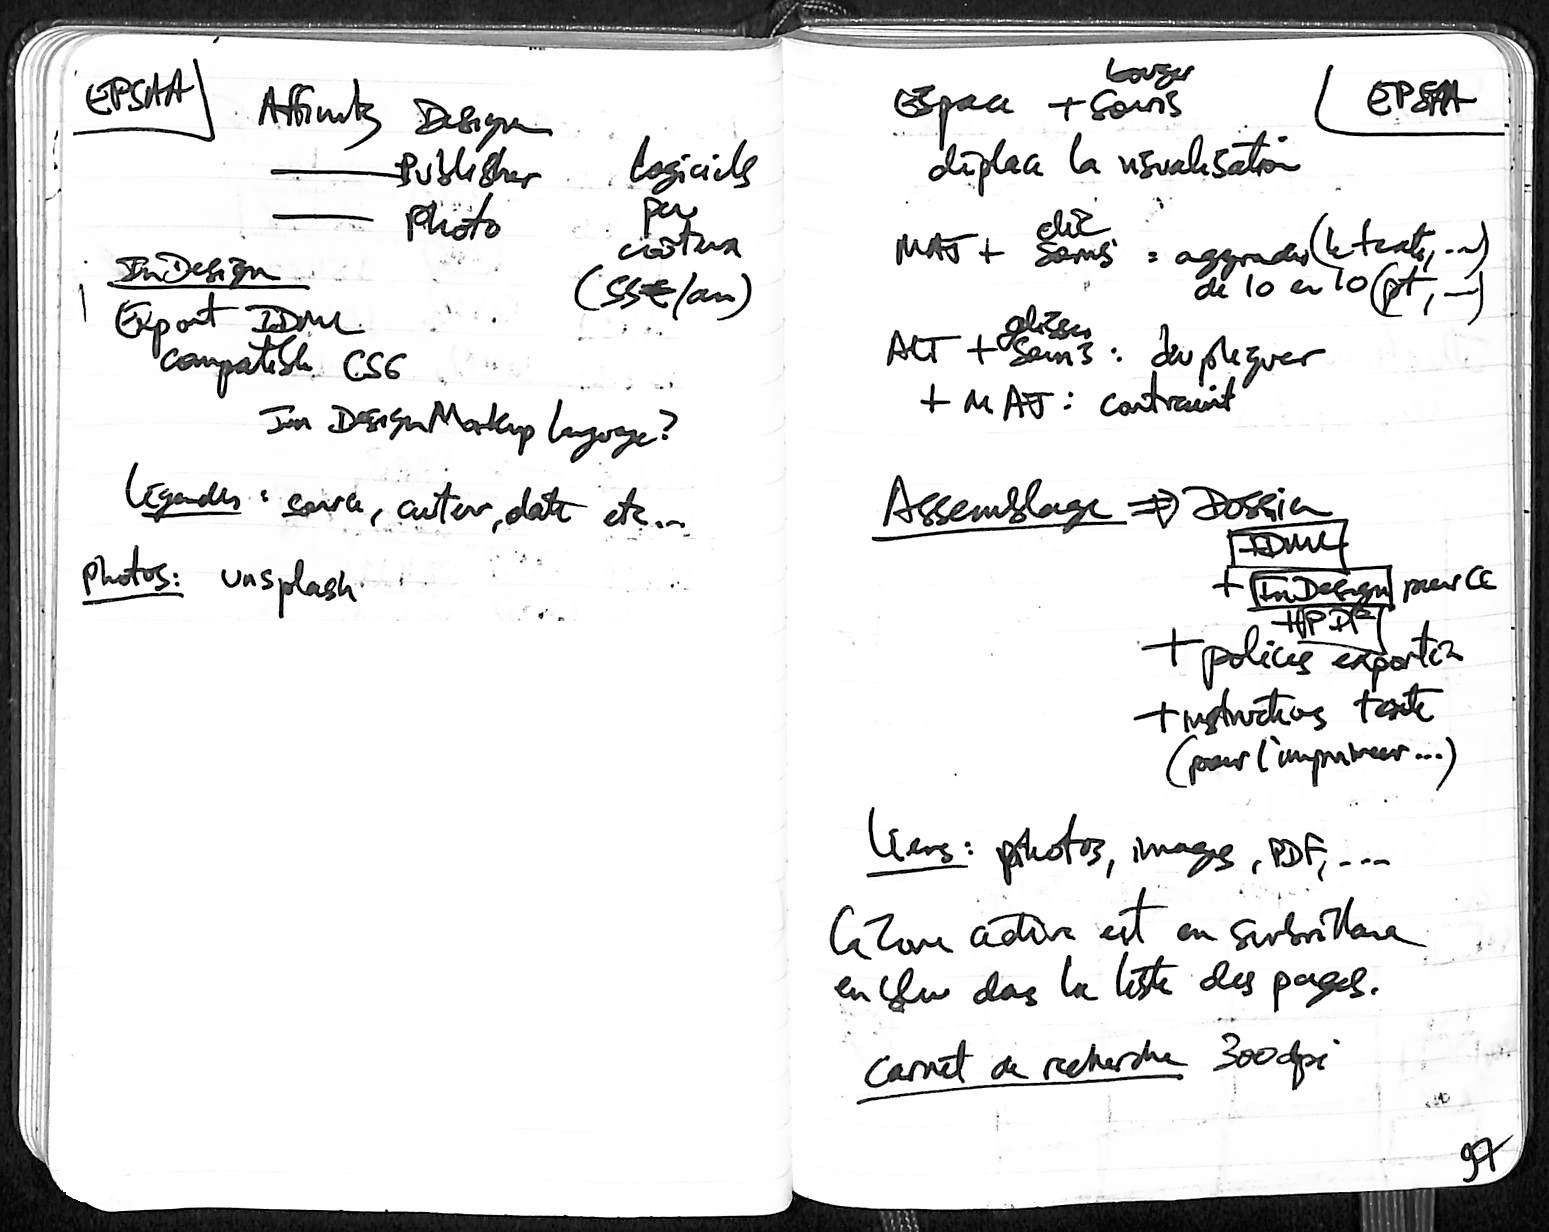 EPSAA
Affinity Design
Publisher
Photo
Logiciels
peu
coûteux
(55€/an)
InDesign
Export IDML
compatible CS6
In Design Markup Language?
Légendes : source, auteur, date etc...
Photos: unsplash
EPSAA
bouger
Espace + Souris
déplace la visualisation
clic
MAJ + Souris = aggrandir (le texte, ...)
de 10 en 10 (pt, ...)
glisser
ALT + Souris : dupliquer
+ MAJ : contraint
Assemblage ⇒ Dossier
IDML
+ InDesign pour CC
+ PDF
+ polices exportées
+ instructions texte
(pour l'imprimeur...)
Liens : photos, images, PDF, ....
La zone active est en surbrillance
en bleu dans la liste des pages.
Carnet de recherche 300dpi
97